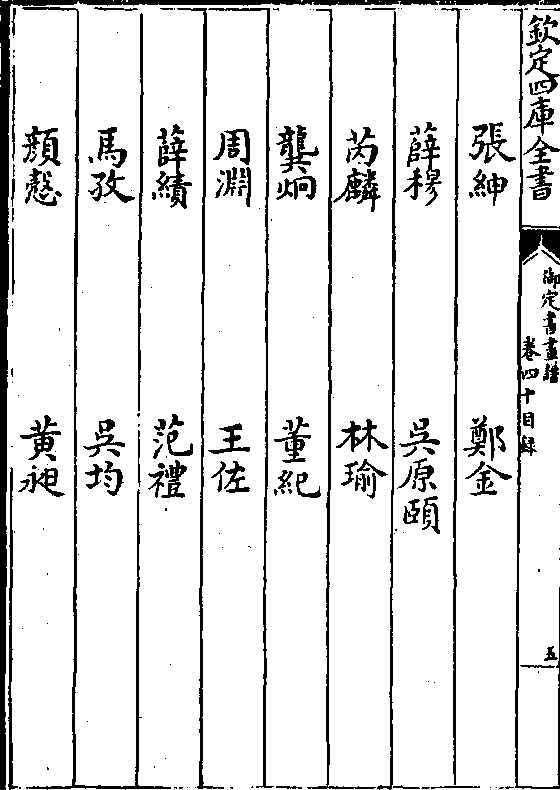 欽定四庫全書
御定書畫譜
卷四十目錄
五
張紳 鄭金
薛穆 吳原頤
芮麟 林瑜
龔炯 董紀
周淵 王佐
薛績 范禮
馬孜 吳均
顏慤 黃昶